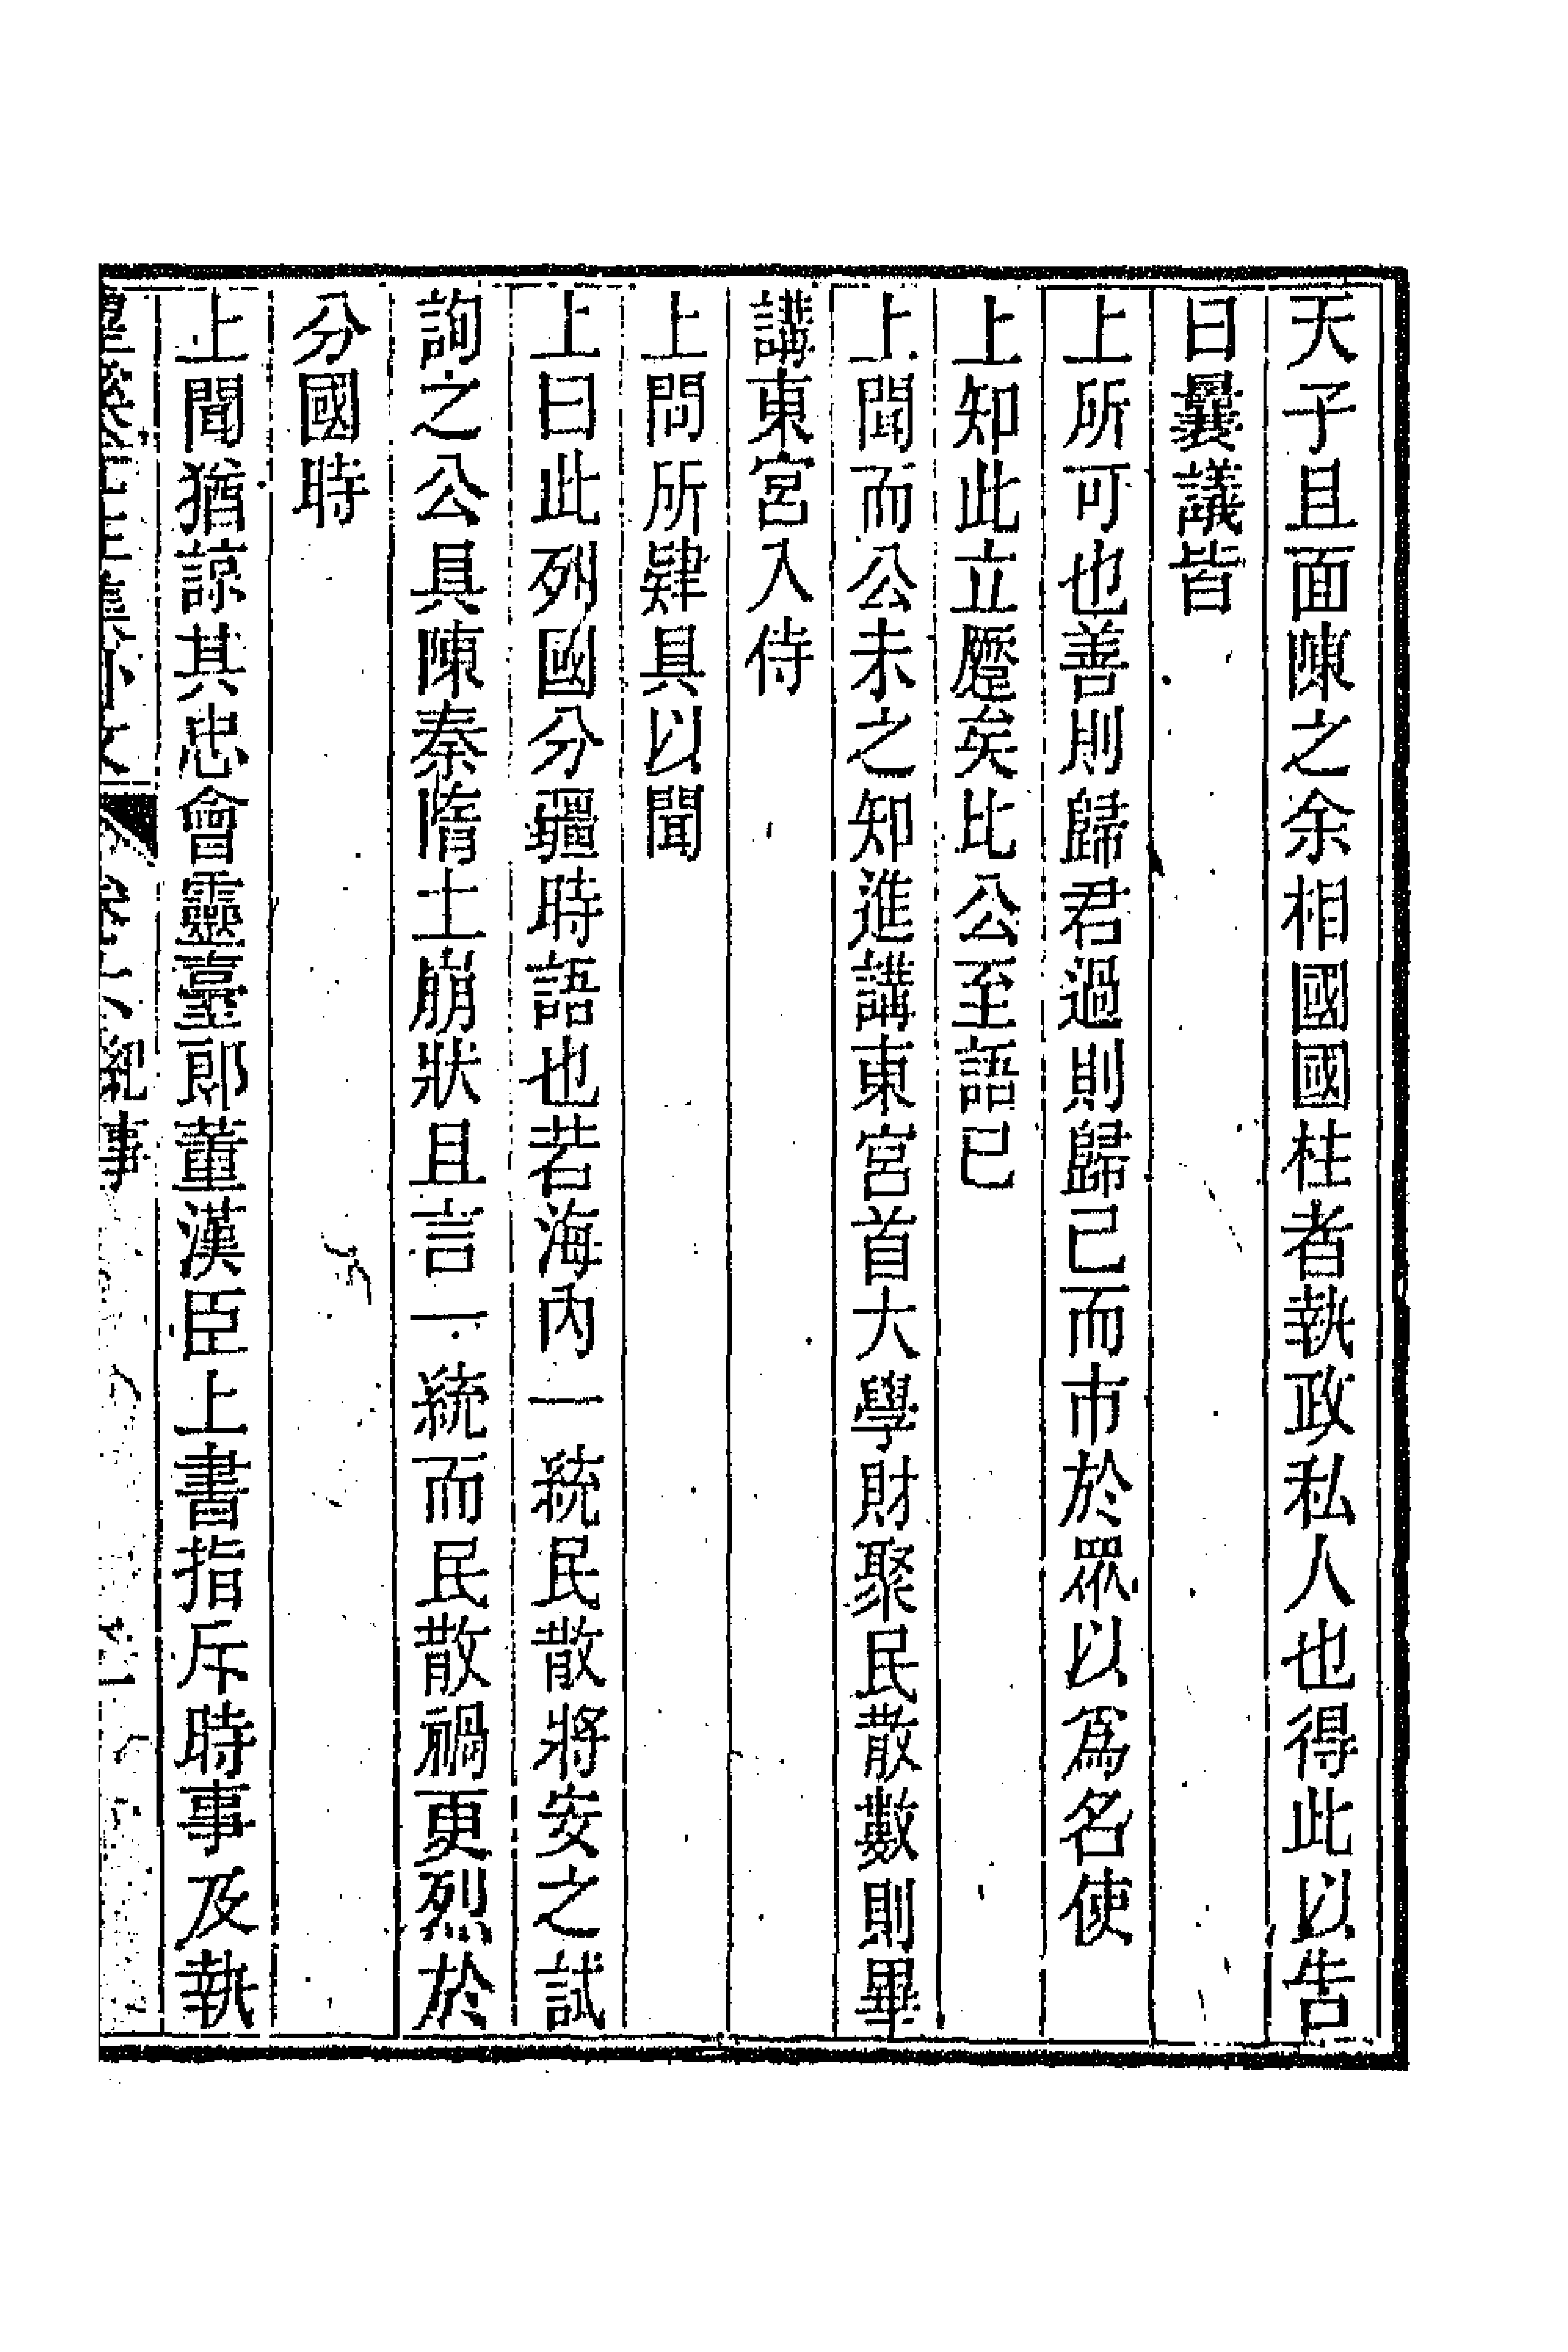 天子且面陳之余相國國柱者執政私人也得此以告
曰曩議皆
上所可也善則歸君過則歸己而市於眾以爲名使
上知此立虀矣比公至語已
上聞而公未之知進講東宮首大學財聚民散數則畢
講東宮入侍
上問所肄具以聞
上曰此列國分疆時語也若海內一統民散將安之試
詢之公具陳秦隋土崩狀且言一統而民散禍更烈於
分國時
上聞猶諒其忠會靈臺郎董漢臣上書指斥時事及執
紀事